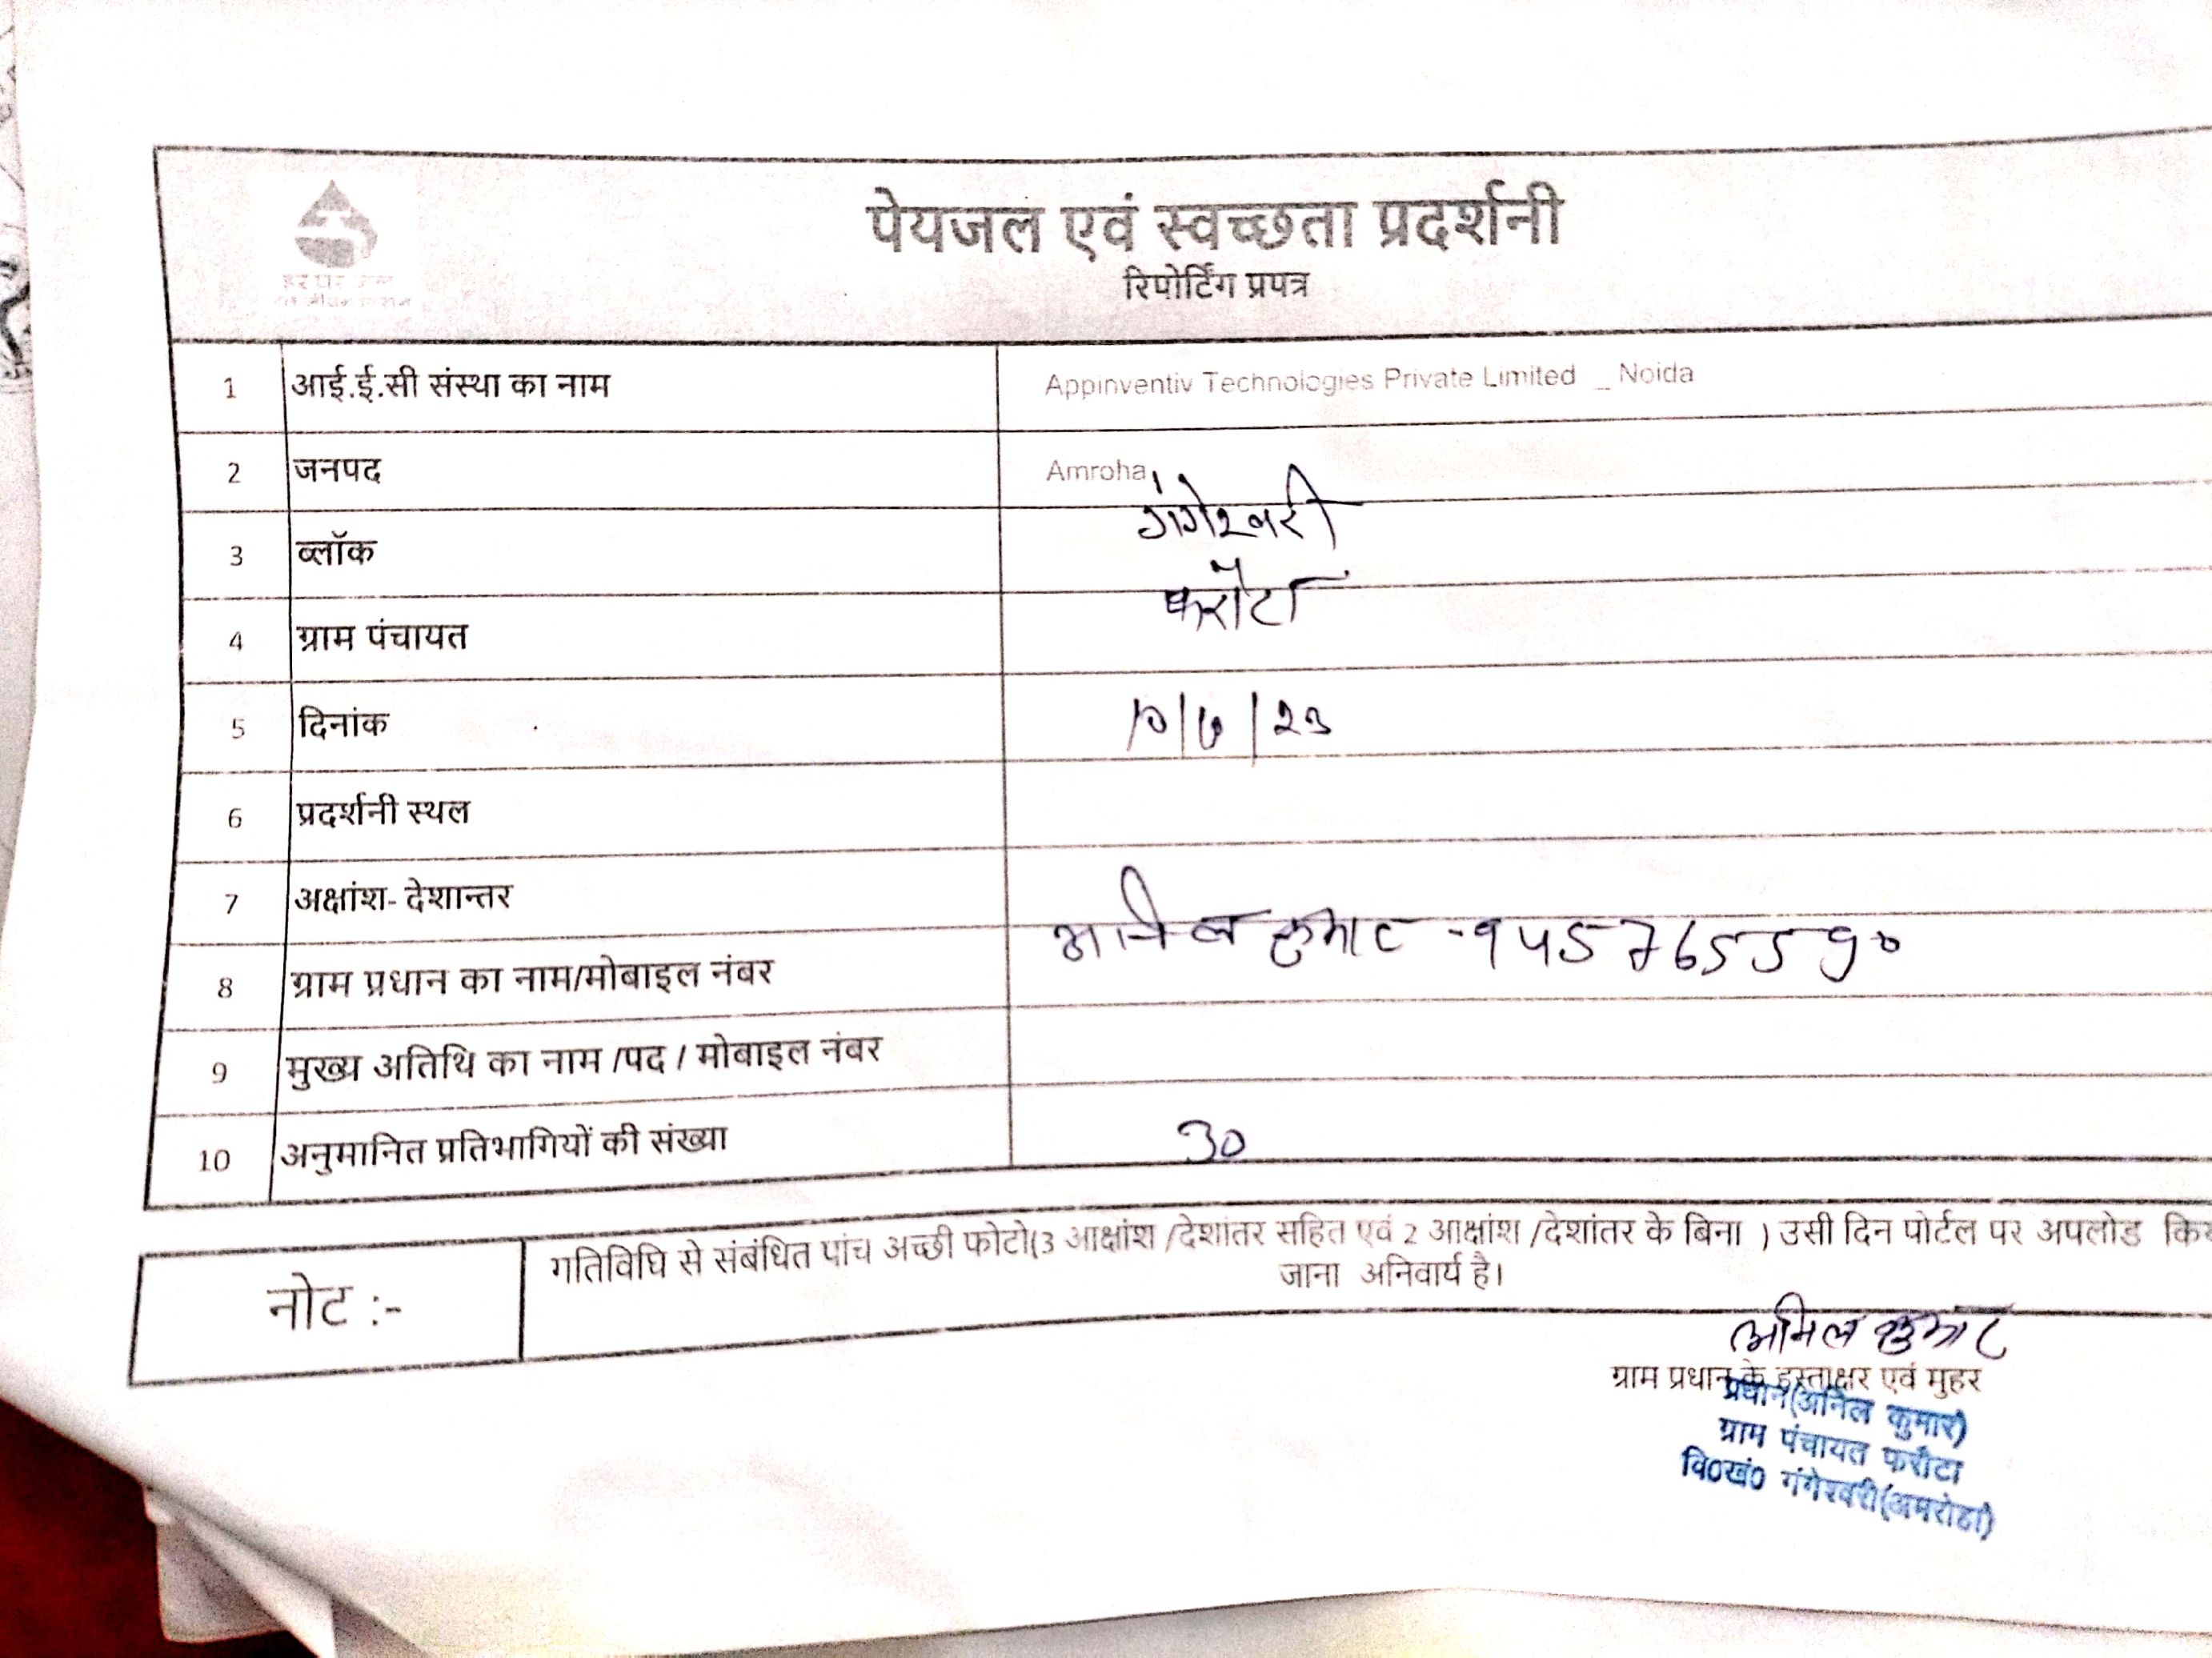 पेयजल एवं स्वच्छता प्रदर्शनी
रिपोर्टिंग प्रपत्र
हर घर जल
1 आई.ई.सी संस्था का नाम Appinventiv Technologies Private Limited _ Noida
2 जनपद Amroha
3 ब्लॉक गंगेश्वरी
4 ग्राम पंचायत फरौटा
5 दिनांक
6 प्रदर्शनी स्थल
7 अक्षांश- देशान्तर
8 ग्राम प्रधान का नाम/मोबाइल नंबर अनिल कुमार -
9 मुख्य अतिथि का नाम /पद / मोबाइल नंबर
10 अनुमानित प्रतिभागियों की संख्या 30
नोट :- गतिविधि से संबंधित पांच अच्छी फोटो(3 आक्षांश /देशांतर सहित एवं 2 आक्षांश /देशांतर के बिना ) उसी दिन पोर्टल पर अपलोड
जाना अनिवार्य है।
अनिल कुमार
ग्राम प्रधान के हस्ताक्षर एवं मुहर
प्रधान(अनिल कुमार)
ग्राम पंचायत फरौटा
वि०खं० गंगेश्वरी(अमरोहा)